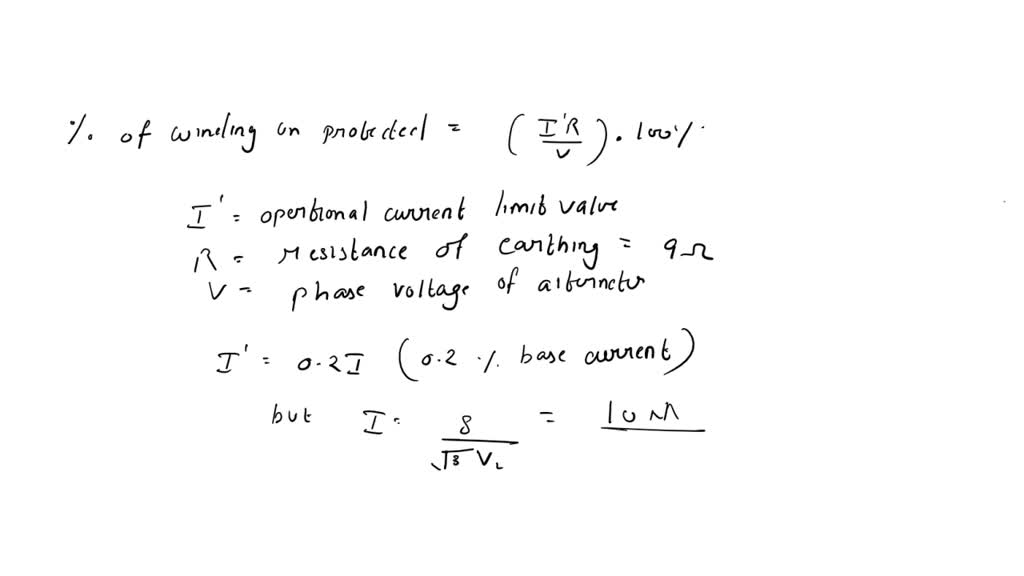 % of winding un protected = (I'R / V) . 100%
I' = opertional current limit value
R = resistance of earthing = 9Ω
V = phase voltage of alternator
I' = 0.2I (0.2 % base current)
but I = 8 / √3 VL = 10 M